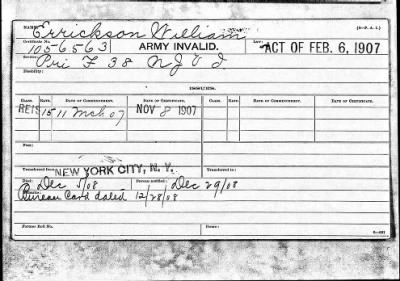 NAME: Errickson William (3-F.A.I.)
Certificate No. 1056563 ARMY INVALID. Law: ACT OF FEB. 6, 1907
Service: Pri F 38 N J V I
Disability:
ISSUES.
CLASS. RATE. DATE OF COMMENCEMENT. DATE OF CERTIFICATE. CLASS. RATE. DATE OF COMMENCEMENT. DATE OF CERTIFICATE.
REIS 15 11 Mch 07 NOV 8 1907
Transferred from NEW YORK CITY, N. Y. Transferred to
Died: Dec 5/08 Bureau notified: Dec 29/08
Remarks: Bureau Card dated 12/28/08
Former Roll No. Home